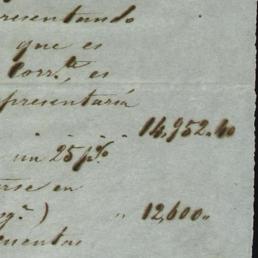 resentando
que es
Corr.te, es
presentaría
" 14,952.40
un 25 p%
rse en
g.a) " 12,600 "
cuentas